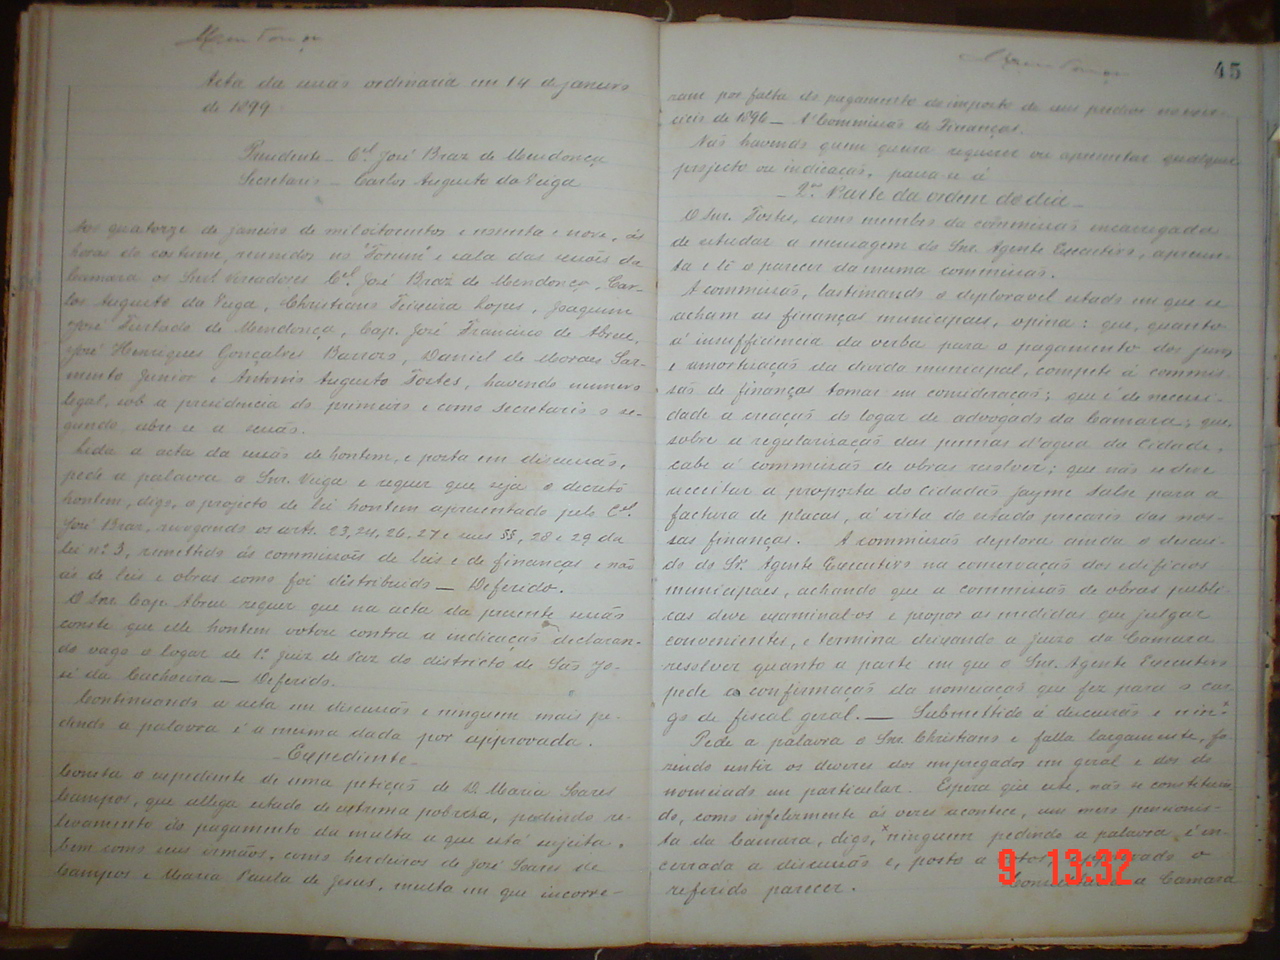 Acta da sessão ordinaria em 14 de janeiro
de 1899.
Presidente — C.el José Braz de Mendonça
Secretario — Carlos Augusto da Veiga
Aos quatorze de janeiro de mil oitocentos e noventa e nove, ás
horas do costume, reunidos no "Forum" e sala das sessões da
Camara os Snrs Vereadores C.el José Braz de Mendonça, Car-
los Augusto da Veiga, Christiano Teixeira Lopes, Joaquim
José Furtado de Mendonça, Cap. José Francisco de Abreu,
José Henriques Gonçalves Barroso, Daniel de Moraes Sar-
mento Junior e Antonio Augusto Fortes, havendo numero
legal, sob a presidencia do primeiro e como secretario o se-
gundo abre-se a sessão.
Lida a acta da sessão de hontem, e posta em discussão,
pede a palavra o Snr. Veiga e requer que seja o decreto
hontem, digo, o projecto de lei hontem apresentado pelo C.el
José Braz, revogando os arts. 23, 24, 26, 27 e seus §§, 28 e 29 da
lei nº 3, remettido ás commissões de leis e de finanças e não
ás de leis e obras como foi distribuido — Deferido.
O Snr. Cap. Abreu requer que na acta da presente sessão
conste que elle hontem votou contra a indicação declaran-
do vago o logar de 1º Juiz de Paz do districto de São Jo-
sé da Cachoeira — Deferido.
Continuando a acta em discussão e ninguem mais pe-
dindo a palavra é a mesma dada por approvada.
— Expediente —
Consta o expediente de uma petição de D. Maria Soares
Campos, que allega estado de extrema pobresa, pedindo re-
levamento do pagamento da multa a que está sujeita,
bem como seus irmãos, como herdeiros de José Soares de
Campos e Maria Paula de Jesus, multa em que incorre-
45
ram por falta do pagamento do imposto de seus predios no exer-
cicio de 1896 — A' Commissão de Finanças.
Não havendo quem queira requerer ou apresentar qualquer
projecto ou indicação, passa-se á
— 2ª Parte da ordem do dia —
O Snr. Fortes, como membro da commissão encarregada
de estudar a mensagem do Snr. Agente Executivo, apresen-
ta e lê o parecer da mesma commissão.
A commissão, lastimando o deploravel estado em que se
acham as finanças municipaes, opina: que, quanto
á insufficiencia da verba para o pagamento dos juros
e amortisação da divida municipal, compete á commis-
são de finanças tomar em consideração; que é de necessi-
dade a creação do logar de advogado da Camara; que,
sobre a regularisação das pennas d'agua da Cidade,
cabe á commissão de obras resolver; que não se deve
acceitar a proposta do cidadão Jayme Salse para a
factura de placas, á vista do estado precario das nos-
sas finanças. A commissão deplora ainda o descui-
do do Sr. Agente Executivo na conservação dos edificios
municipaes, achando que a commissão de obras publi-
cas deve examinal-os e propor as medidas que julgar
convenientes, e termina deixando a juizo da Camara
resolver quanto a parte em que o Snr. Agente Executivo
pede a confirmação da nomeação que fez para o car-
go de fiscal geral. — Submettido á discussão e nin-x
Pede a palavra o Snr. Christiano e falla largamente, fa-
zendo sentir os deveres dos empregados em geral e dos do
nomeado em particular. Espera que este, não se constituin-
do, como infelizmente ás vezes acontece, um mero pensionis-
ta da Camara, digo, x ninguem pedindo a palavra, é en-
cerrada a discussão e, posto a votos o
referido parecer.
a Camara
9 13:32